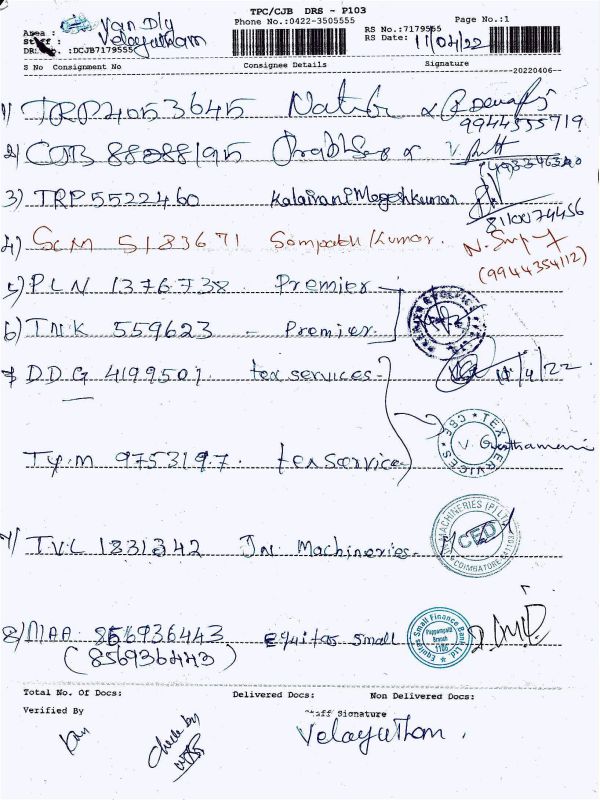 TPC/CJB DRS - P103
Phone No.:0422-3505555
Page No.:1
RS No.:7179555
RS Date: 11/04/22
Area : Van Dly
Staff : Velayutham
DRS No. :DCJB7179555
S No Consignment No Consignee Details Signature
20220406
1) TRP 4053645
9944555719
2) COB 88088195
3) TRP 5522460 Kalaivani Mageshkumar
8110074456
4) SCM 5183671 Sampath Kumar.
(9944354112)
5) PLN 1376738 Premier
6) TNK 559623 - Premier.
DDG 4199501. tex services- 11/4/22
CBE * TEX SERVICES *
TYM 9753197. tex service
7) TVL 1331342 JN Machineries-
MACHINERIES (P) LTD
CEO
COIMBATORE
8) MAA 856936443 equitas small
Equitas Small Finance Bank Ltd
Branch
1106
(856936443)
Total No. Of Docs: Delivered Docs: Non Delivered Docs:
Verified By Staff Signature
Check by
Velayutham.